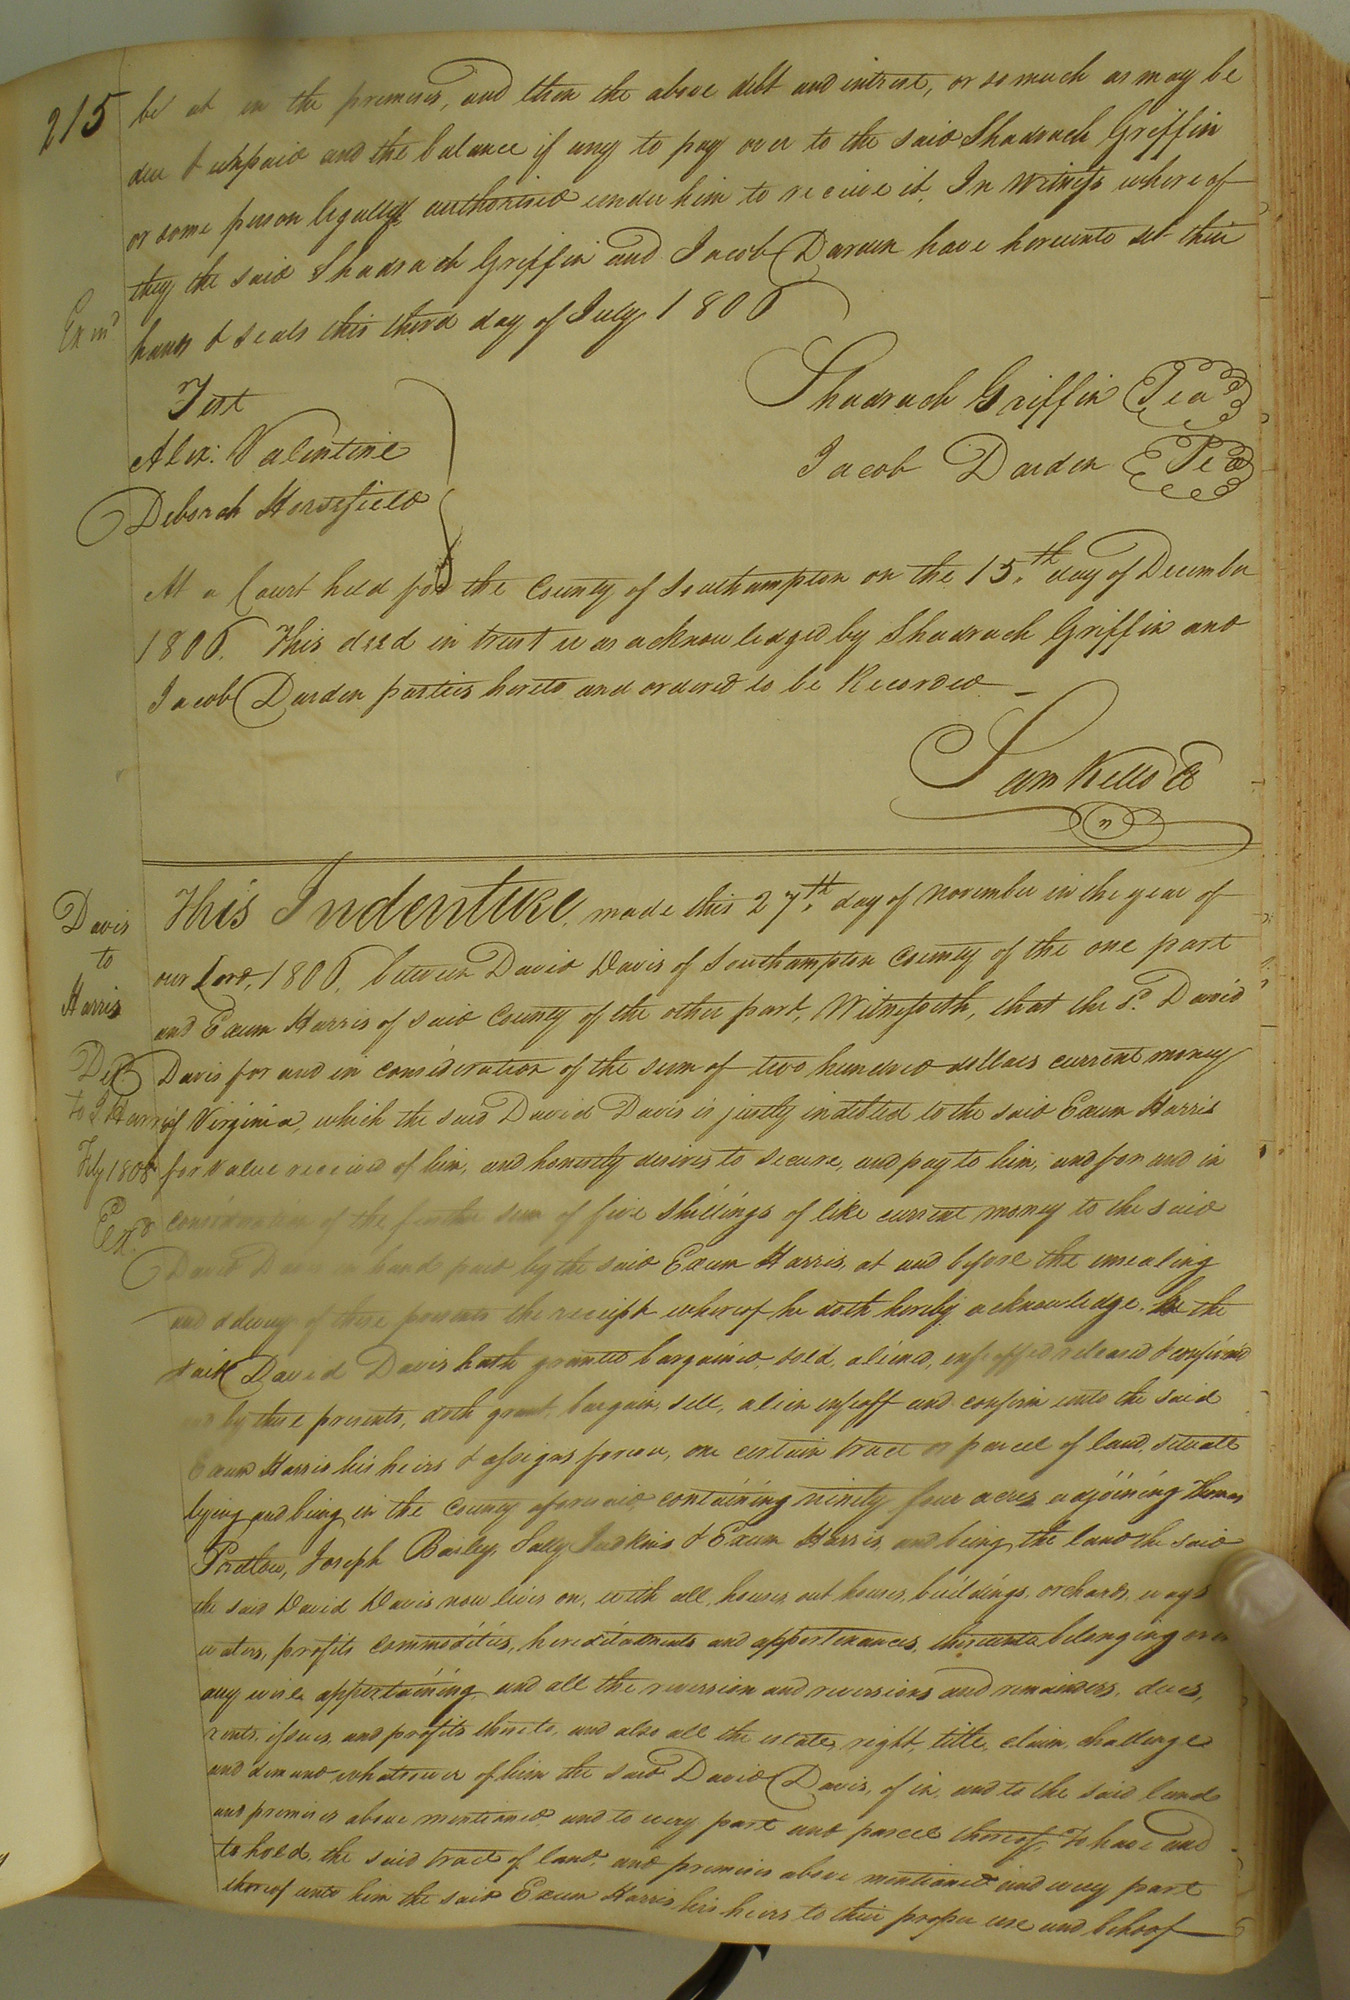 215
be at in the premises, and then the above debt and intrest, or so much as may be
due & unpaid and the balance if any to pay over to the said Shadrach Griffin
or some person legally authorised under him to receive it. In Witness where of
they the said Shadrach Griffin and Jacob Darden have hereunto set their
Exmd
hands & seals this third day of July 1806
Test
Alex: Valentine
Deborah Horsefield
Shadrach Griffin Seal
Jacob Darden Seal
At a Court held for the County of Southampton on the 15.th day of December
1806. This deed in trust was acknowledged by Shadrach Griffin and
Jacob Darden parties hereto and ordered to be Recorded
Sam Kello Ct
Davis
to
Harris
Del.
to J Harris
Feby 1808
Exd
This Indenture, made this 27th. day of november in the year of
our Lord, 1806, between David Davis of Southampton County of the one part
and Exum Harris of said County of the other part, Witnesseth, that the sd. David
Davis for and in consideration of the sum of two hundred dollars current money
of Virginia, which the said David Davis is justly indebted to the said Exum Harris
for value received of him, and honestly desires to secure, and pay to him, and for and in
consideration of the further sum of five shillings of like current money to the said
David Davis in hand paid by the said Exum Harris, at and before the ensealing
and delivery of these presents the receipt whereof he doth hereby acknowledge. he the
said David Davis hath granted bargained, sold, aliened, enfeoffed released & confirmed
and by these presents, doth grant, bargain, sell, alien enfeoff and confirm unto the said
Exum Harris his heirs & assigns forever, one certain tract or parcel of land, situate
lying and being in the County aforesaid containing ninety four acres adjoining Thomas
Pretlow, Joseph Bailey, Sally Judkins & Exum Harris, and being the land the said
the said David Davis now lives on, with all, houses, out houses, buildings, orchards, ways
waters, profits commodities, hereditaments and appertenances, thereunto belonging or in
any wise appertaining and all the reversion and reversions and remainders, dues,
rents, issues, and profits thereto, and also all the estate, right, title, claim, challenge
and demand whatsoever of him the said David Davis, of in, and to the said land
and premises above mentioned and to every part and parcel thereof, To have and
to hold, the said tract of land, and premises above mentioned and every part
thereof unto him the said Exum Harris his heirs to their proper use and behoof